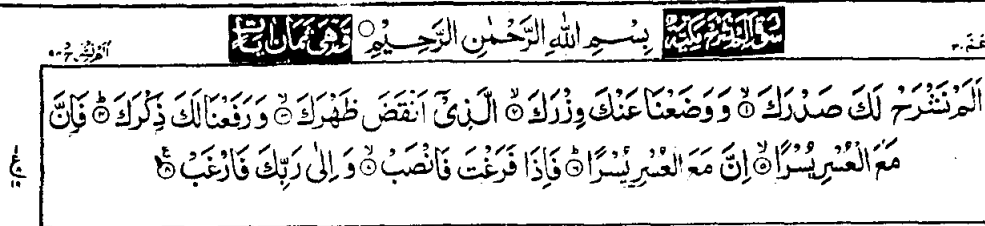 عَمَّ ٣٠ سُوْرَةُ اَلَمْ نَشْرَحْ مَكِّيَّةٌ بِسْمِ اللهِ الرَّحْمٰنِ الرَّحِيْمِ وَهِيَ ثَمَانُ اٰيَاتٍ الم نشرح
اَلَمْ نَشْرَحْ لَكَ صَدْرَكَ ۙ﴿١﴾ وَوَضَعْنَا عَنْكَ وِزْرَكَ ۙ﴿٢﴾ الَّذِيْۤ اَنْقَضَ ظَهْرَكَ ۙ﴿٣﴾ وَرَفَعْنَا لَكَ ذِكْرَكَ ؕ﴿٤﴾ فَاِنَّ
مَعَ الْعُسْرِ يُسْرًا ۙ﴿٥﴾ اِنَّ مَعَ الْعُسْرِ يُسْرًا ؕ﴿٦﴾ فَاِذَا فَرَغْتَ فَانْصَبْ ۙ﴿٧﴾ وَاِلٰى رَبِّكَ فَارْغَبْ ﴿٨﴾